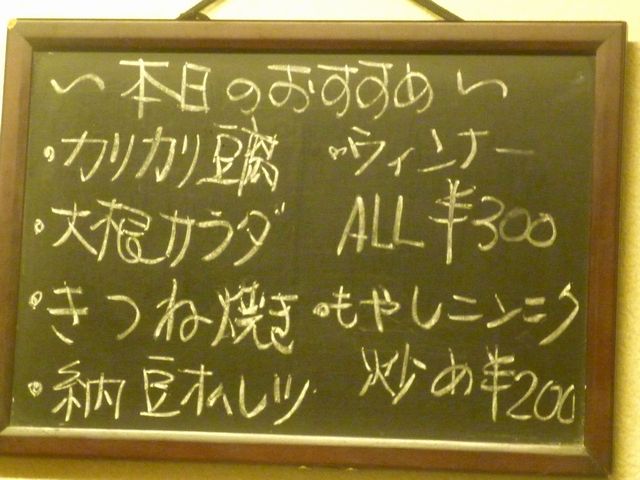 〜本日のおすすめ〜
・カリカリ豆腐
・大根サラダ
・きつね焼き
・納豆オムレツ
・ウィンナー
ALL ¥300
・もやしニンニク
炒め¥200